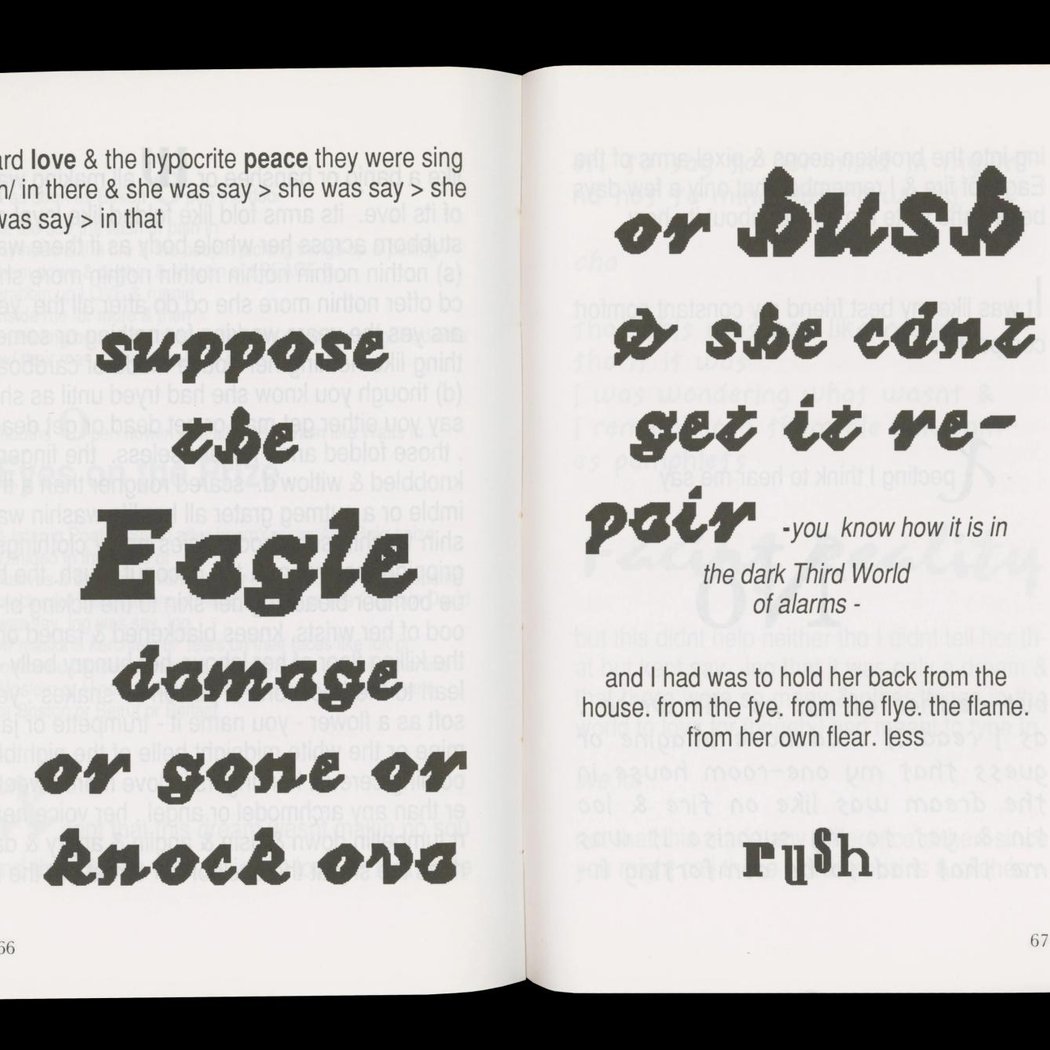 ard love & the hypocrite peace they were sing
n/ in there & she was say > she was say > she
was say > in that
suppose
the
Eagle
damage
or gone or
knock ova
66
or bush
& she cdnt
get it re-
pair -you know how it is in
the dark Third World
of alarms -
and I had was to hold her back from the
house. from the fye. from the flye. the flame.
from her own flear. less
rush
67